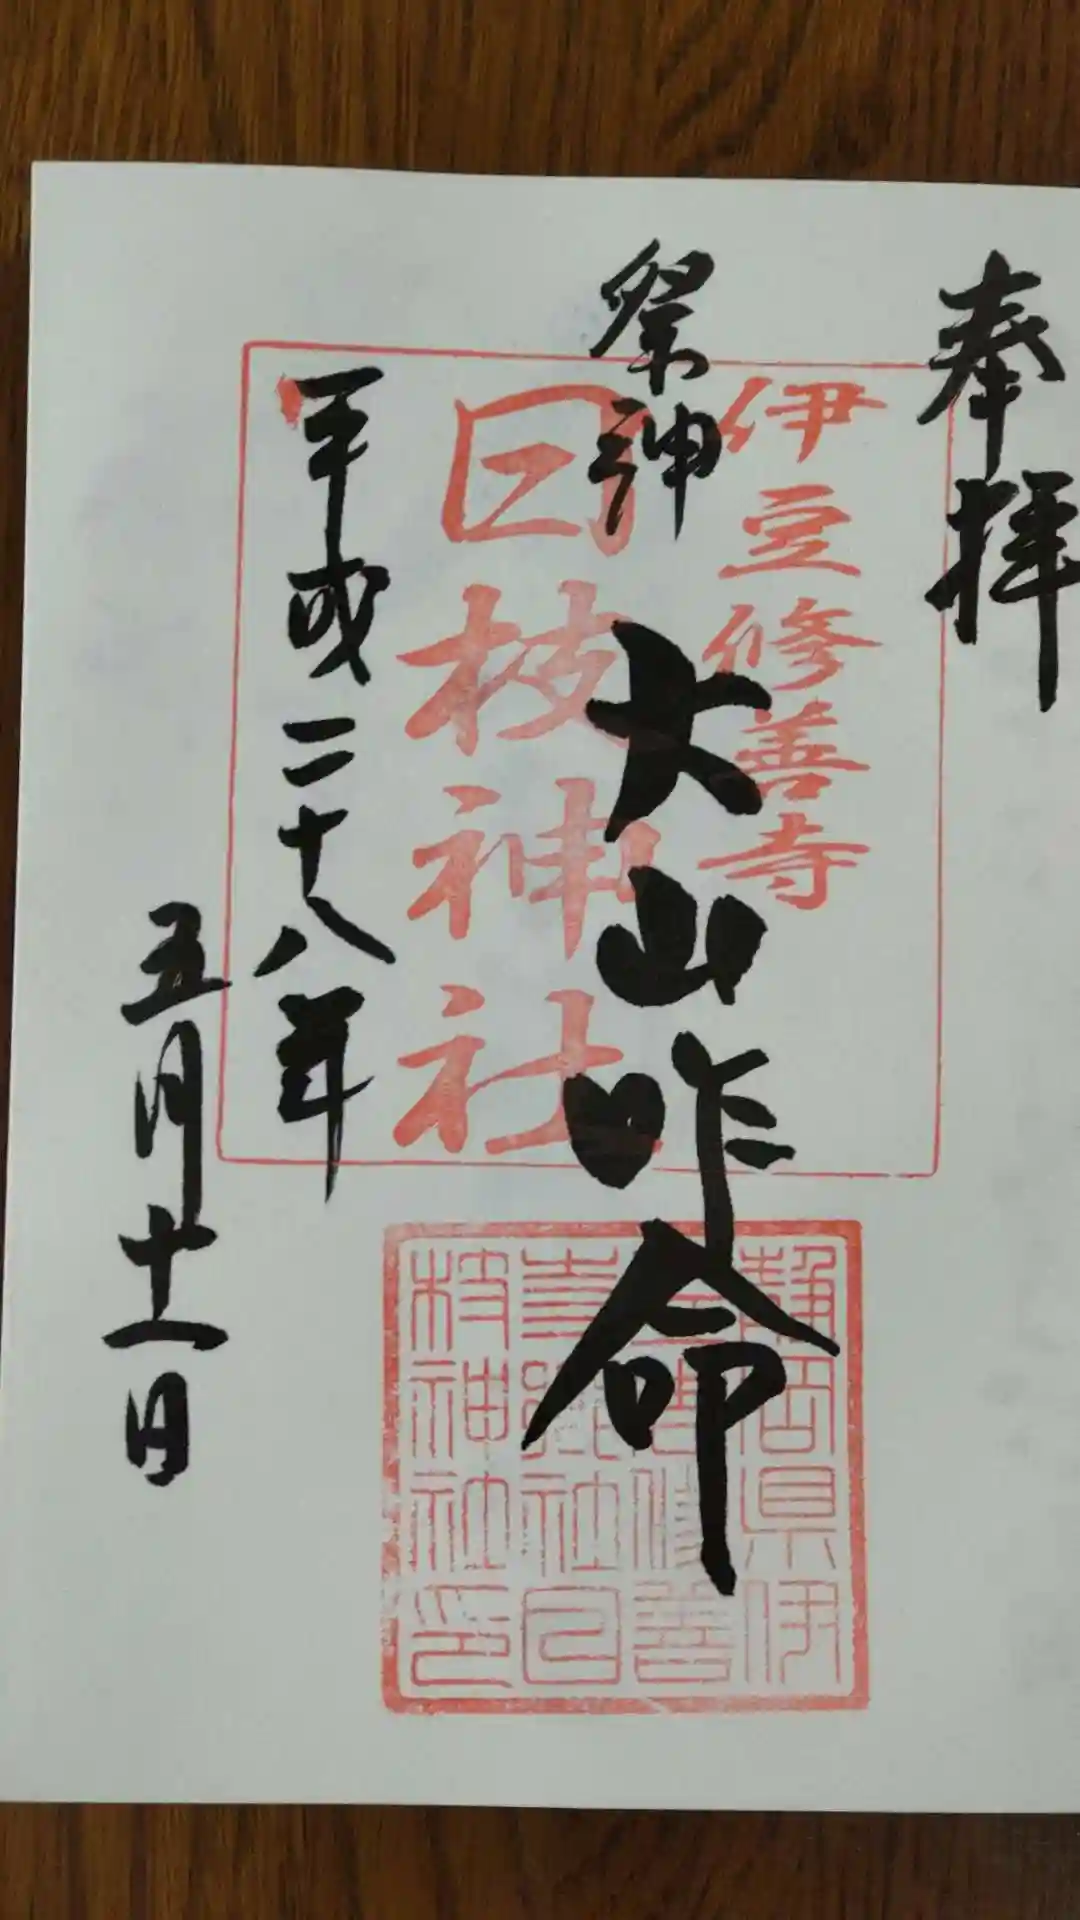 奉拝
伊豆修善寺
祭神
大山咋命
日枝神社
平成二十八年
五月十一日
静岡県伊
豆市修善
寺鎮社日
枝神社印